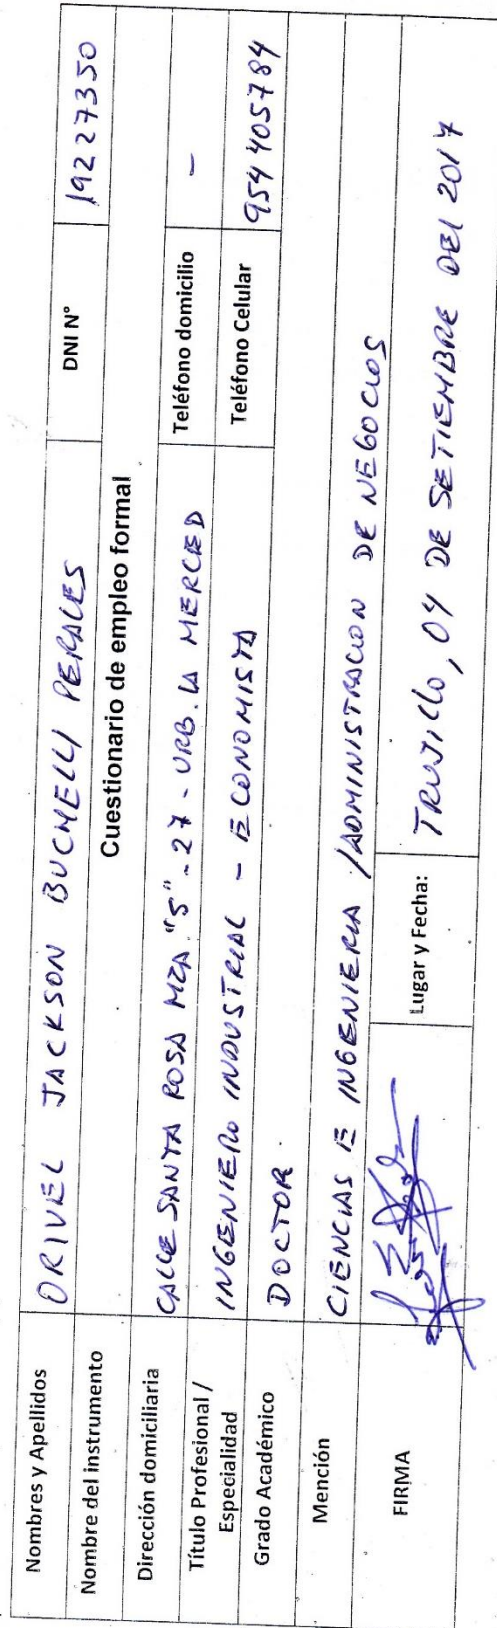 Nombres y Apellidos ORIVEL JACKSON BUCHELLI PERALES DNI N° 19227350
Nombre del instrumento Cuestionario de empleo formal
Dirección domiciliaria CALLE SANTA ROSA MZA. "S" - 27 - URB. LA MERCED Teléfono domicilio -
Título Profesional /
Especialidad INGENIERO INDUSTRIAL - ECONOMISTA Teléfono Celular 954 405784
Grado Académico DOCTOR.
Mención CIENCIAS E INGENIERIA / ADMINISTRACION DE NEGOCIOS
FIRMA Lugar y Fecha: TRUJILLO, 04 DE SETIEMBRE DEL 2017